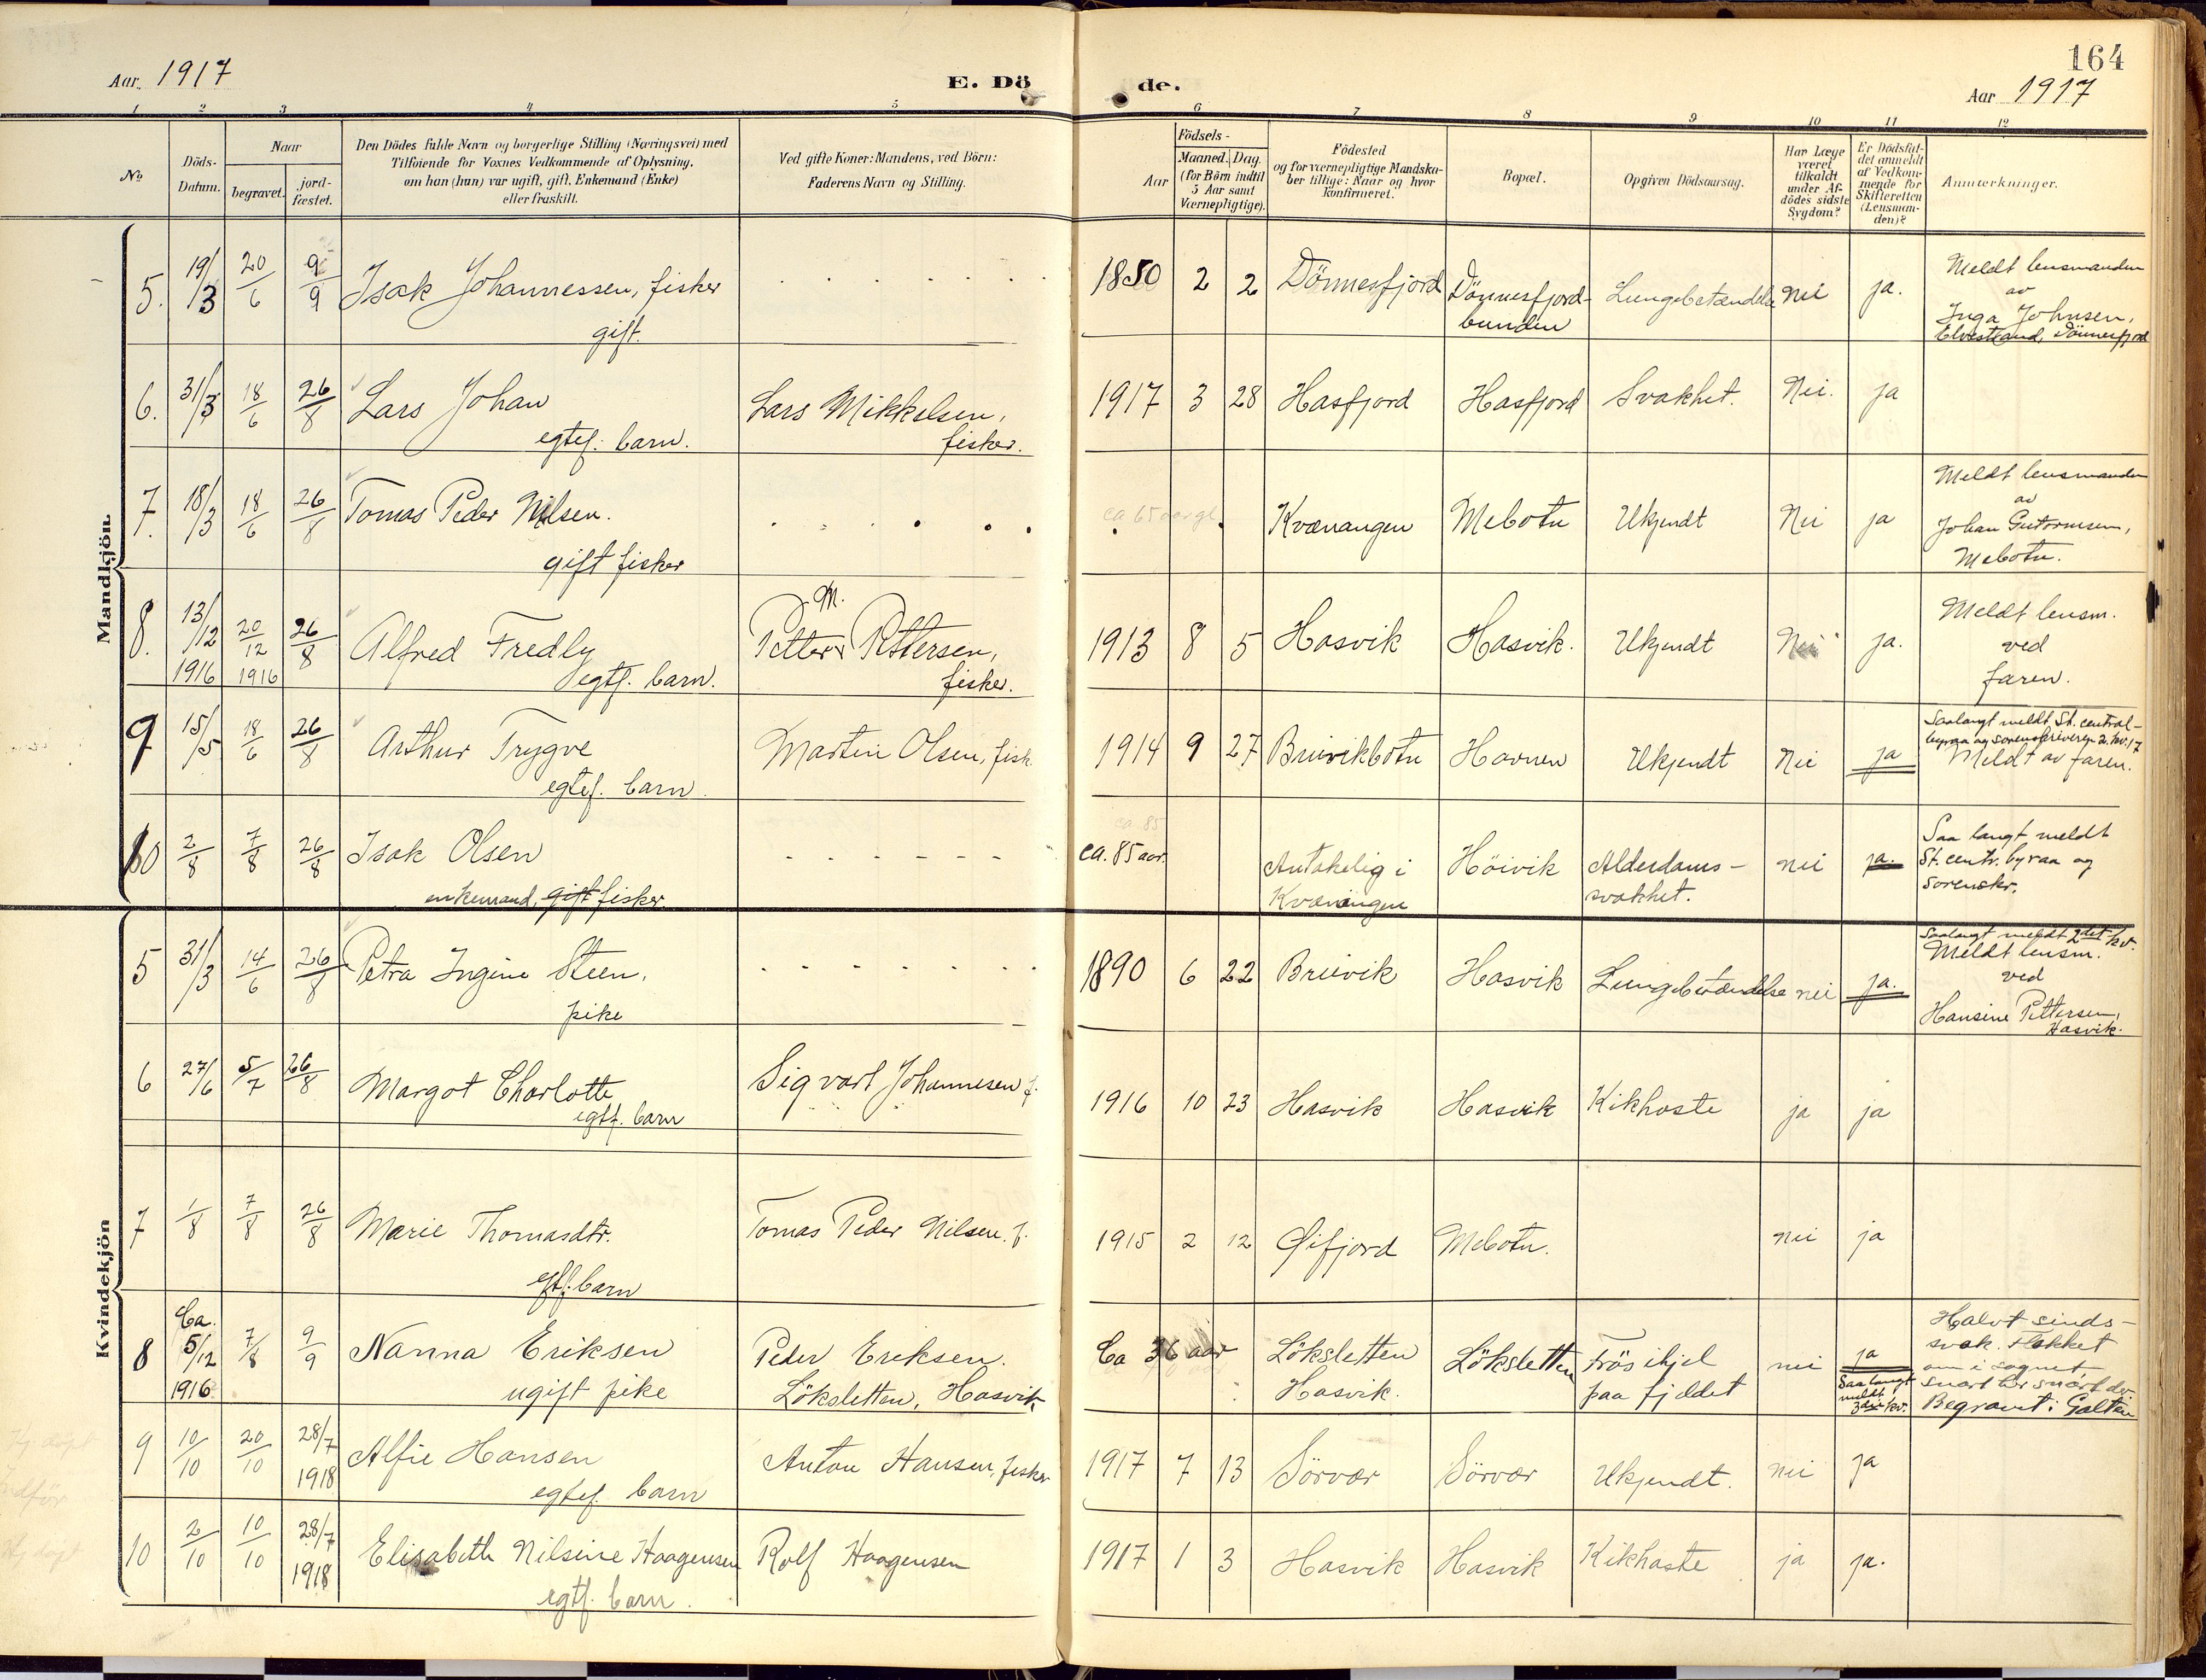 164
Aar. 1917
E. Dö
de.
Aar 1917
1 2 3 4 5 6 7 8 9 10 11 12
No
Döds-
Datum.
Naar
begravet.
jord-
fæstet.
Den Dödes fulde Navn og borgerlige Stilling (Næringsvei) med
Tilföiende for Voxnes Vedkommende af Oplysning,
om han (hun) var ugift, gift, Enkemand (Enke)
eller fraskilt.
Ved gifte Koner: Mandens, ved Börn:
Faderens Navn og Stilling.
Födsels-
Aar
Maaned. Dag.
(for Börn indtil
5 Aar samt
Værnepligtige).
Födested
og for værnepligtige Mandska-
ber tillige: Naar og hvor
konfirmeret.
Bopæl.
Opgiven Dödsaarsag.
Har Læge
været
tilkaldt
under Af-
dödes sidste
Sygdom?
Er Dödsfal-
det anmeldt
af Vedkom-
mende for
Skifteretten
(Lensman-
den)?
Anmærkninger.
Mandkjön.
5. 19/3 20/6 9/9 Isak Johannessen, fisker
gift.
1850 2 2 Dönnesfjord Dönnesfjord-
bunden
Lungebetændelse nei ja.
Meldt lensmanden
av
Inga Johnsen,
Elvestrand, Dönnesfjord
6. 31/3 18/6 26/8 Lars Johan
egtef. barn.
Lars Mikkelsen,
fisker.
1917 3 28 Hasfjord Hasfjord Svakhet. Nei. ja
7. 18/3 18/6 26/8 Tomas Peder Nilsen.
gift fisker
ca 65 aar gl. Kvænangen Mebotn Ukjendt Nei ja
Meldt lensmanden
av
Johan Guttormsen,
Mebotn.
8. 13/12 1916 20/12 1916 26/8 Alfred Fredly
egtf. barn.
M.
Petter Pettersen,
fisker.
1913 8 5 Hasvik Hasvik. Ukjendt Nei ja.
Meldt lensm.
ved
faren.
9 15/5 18/6 26/8 Arthur Trygve
egtef. barn.
Martin Olsen, fisk.
1914 9 27 Breivikbotn Havnen Ukjendt Nei ja
Saalangt meldt St. central-
byraa og sorenskriveren 2. kv. 17
Meldt av faren.
10 2/8 7/8 26/8 Isak Olsen
enkemand, gift fisker.
ca 85
ca. 85 aar. Antakelig i
Kvænangen
Höivik Alderdoms-
svakhet.
nei ja.
Saa langt meldt
St. centr. byraa og
sorenskr.
Kvindekjön
5 31/3 14/6 26/8 Petra Ingine Steen,
pike
1890 6 22 Breivik Hasvik Lungebetændelse nei ja.
Saalangt meldt 2det kv.
Meldt lensm.
ved
Hansine Pettersen,
Hasvik.
6 27/6 5/7 26/8 Margot Charlotte
egtf. barn
Sigvart Johannesen f.
1916 10 23 Hasvik Hasvik Kikhoste ja ja
7 1/8 7/8 26/8 Marie Thomasdtr.
egtf. barn
Tomas Peder Nilsen. f.
1915 2 12 Øifjord Mebotn. nei ja
8 Ca. 5/12 1916 7/8 9/9 Nanna Eriksen
ugift pike
Peder Eriksen.
Löksletten, Hasvik
Ca 36 aar Löksletten
Hasvik.
Löksletten Frös ihjel
paa fjeldet
nei ja
Saa langt
meldt
3die kv.
Halvt sinds-
svak. Flakket
om i sognet
snart her snart der.
Begravet i Galten
9 10/10 20/10 28/7 1918 Alfie Hansen
egtef. barn
Anton Hansen, fisker
1917 7 13 Sörvær Sörvær Ukjendt. nei ja
10 2/10 10/10 28/7 1918 Elisabeth Nilsine Haagensen
egtf. barn.
Rolf Haagensen
1917 1 3 Hasvik Hasvik Kikhoste ja ja.